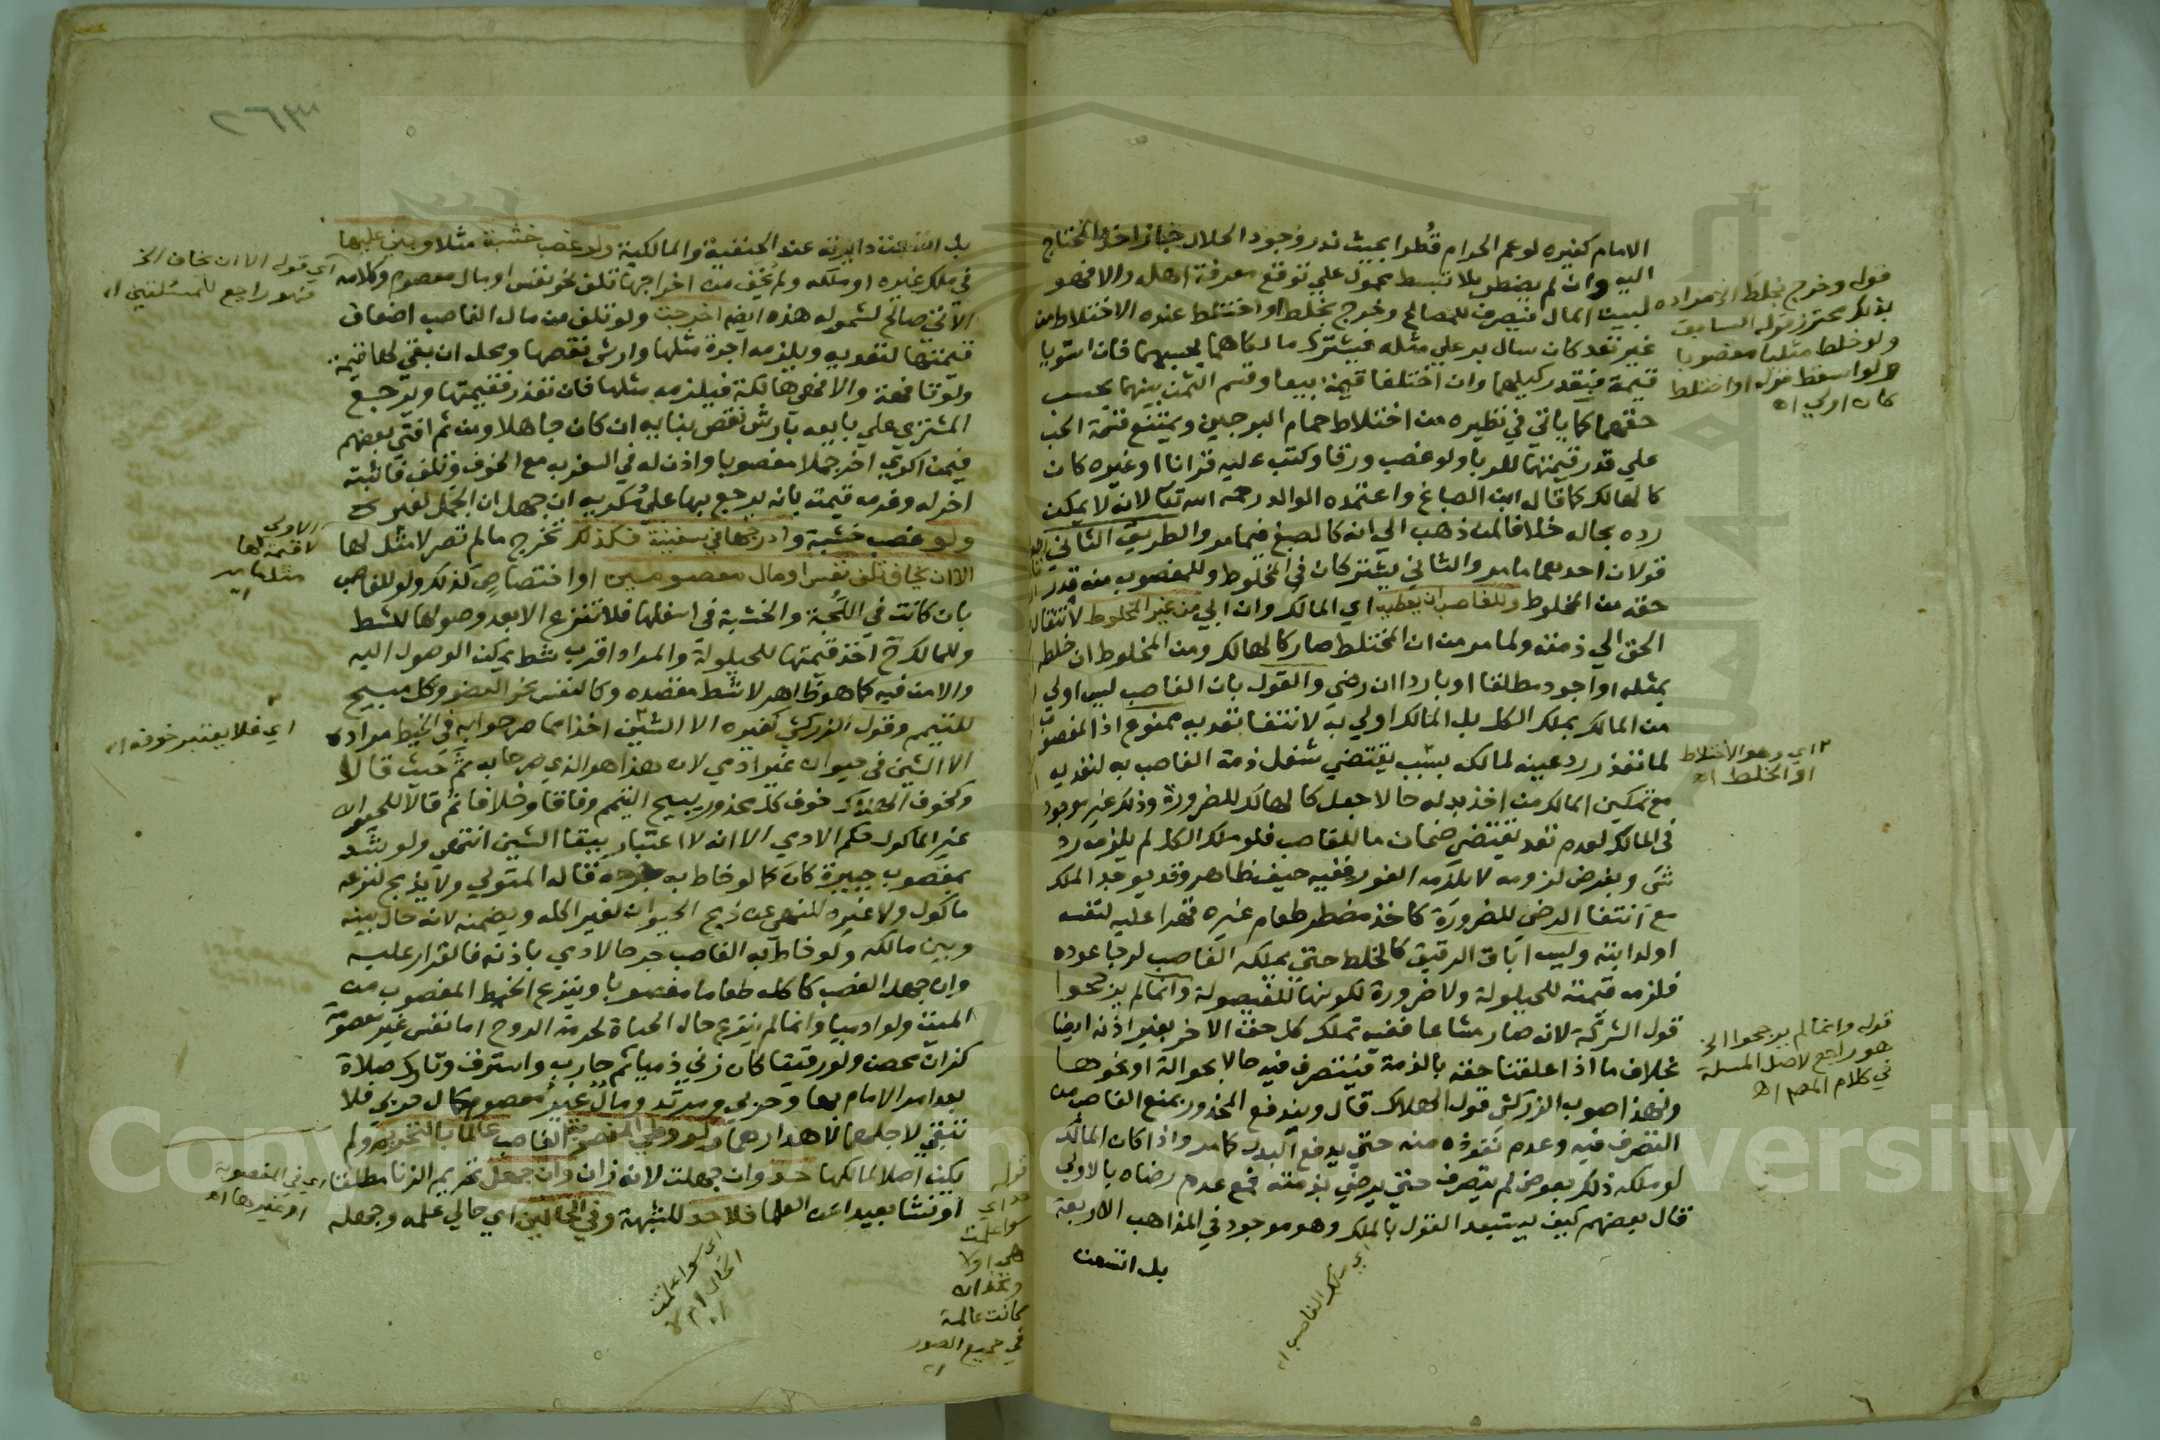 الامام كغيره لو عم الحرام قُطرا بحيث ندر وجود الحلال جاز اخذ المحتاج
اليه وان لم يضطر بلا تبسط محمول علي توقع معرفة اهله والا فهو
لبيت المال فيصرف للمصالح وخرج بخلط او اختلط عنده الاختلاط من
غير تعد كان سال بر علي مثله فيشترك مالكاهما بحسبهما فان استويا
قيمة فبقدر كيلهما وان اختلفا قيمة بيعا وقسم الثمن بينهما بحسب
حقهما كما ياتي في نظيره من اختلاط حمام البرجين ويمتنع قسمة الحب
علي قدر قيمتهما للربا ولو غصب ورقا وكتب عليه قرانا او غيره كان
كالهالك كما قال ابن الصباغ واعتمده الوالد رحمه الله تعالي لانه لا يمكن
رده بحاله خلافا لمن ذهب الي انه كالصبغ فيما مر والطريق الثاني
قولان احدهما ما مر والثاني يشتركان في المخلوط وللمغصوب منه قدر
حقه من المخلوط وللغاصب ان يعطيه اي المالك وان ابي من غير المخلوط لانتقال
الحق الي ذمته ولما مر من ان المختلط صار كالهالك ومن المخلوط ان خلطه
بمثله او اجود مطلقا او باردا ان رضي والقول بان الغاصب ليس اولي
من المالك بملك الكل بل المالك اولي به لانتفا تعديه ممنوع اذ المغصوب
لما تعذر رد عينه لمالكه بسبب يقتضي شغل ذمة الغاصب به لتعديه
مع تمكين المالك من اخذ بدله حالا جعل كالهالك للضرورة وذلك غير موجود
في المالك لعدم تعد يقتضي ضمان ما للغاصب فلو ملك الكل لم يلزمه رد
شي وبفرض لزومه لا يلزمه الفور ففيه حيف ظاهر وقد يوجد الملك
مع انتفا الرضي للضرورة كاخذ مضطر طعام غيره قهرا عليه لنفسه
او لدابته وليس اباق الرقيق كالخلط حتي يملكه الغاصب لرجا عوده
فلزمه قيمته للحيلولة ولا ضرورة لكونها للفيصولة وانما لم يرجحوا
قول الشركة لانه صار مشاعا ففيه تملك كل حق الاخر بغير اذنه ايضا
بخلاف ما اذا علقنا حقه بالذمة فيتصرف فيه حالا بحوالة او نحوها
ولهذا صوب الزركشي قول الهلاك قال ويندفع المحذور بمنع الغاصب من
التصرف فيه وعدم نفوذه منه حتي يدفع البدل كما مر واذا كان المالك
لو ملكه ذلك بعوض لم يتصرف حتي يرضي بذمته فمع عدم رضاه بالاولي
قال بعضهم كيف يستبعد القول بالملك وهو موجود في المذاهب الاربعة
بل اتسعت
قوله وخرج بخلط الخ مراده
بذلك محترز قوله السابق
ولو خلط مثليا مغصوبا
ولو اسقط قوله او اختلط
كان اولي اه
اي وهو الاختلاط
او الخلط اه
قوله وانما لم يرجحوا الخ
هو راجع لاصل المسلة
في كلام المصـ اه
اي ملك الغاصب اه
٢٦٣
بل اتسعت دايرته عند الحنفية والمالكية ولو غصب خشبة مثلا وبني عليها
في ملك غيره او ملكه ولم يخف من اخراجها تلف نحو نفس او مال معصوم وكلامه
الاتي صالح لشموله هذه ايضا اخرجت ولو تلف من مال الغاصب اضعاف
قيمتها لتعديه ويلزمه اجرة مثلها وارش نقصها ومحله ان بقي لها قيمة
ولو تافهة والا فهي هالكة فيلزمه مثلها فان تعذر فقيمتها ويرجع
المشتري علي بايعه بارش نقص بنايه ان كان جاهلا ومن ثم افتي بعضهم
فيمن اكري اخر جملا مغصوبا واذن له في السفر به مع الخوف وتلف فاثبته
اخر له وغرمه قيمته بانه يرجع بها علي مُكريه ان جهل ان الجمل لغيره
ولو غصب خشبة وادرجها في سفينة فكذلك تخرج ما لم تصر لا مثل لها
الا ان يخاف تلف نفس او مال معصومين او اختصاص كذلك ولو للغاصب
بان كانت في اللُّجة والخشبة في اسفلها فلا تنزع الا بعد وصولها للشط
وللمالك ح اخذ قيمتها للحيلولة والمراد اقرب شط يمكن الوصول اليه
والامن فيه كما هو ظاهر لا شط مقصده وكالنفس نحو العضو وكل مبيح
للتيمم وقول الزركشي كغيره الا الشين اخذا مما صرحوا به في الخيط مراده
الا الشين في حيوان غير ادمي لان هذا هو الذي صرحا به ثَمَّ حيث قالا
وكخوف الهلاك خوف كل محذور يبيح التيمم وفاقا وخلافا ثم قالا للحيوان
غير الماكول حكم الادمي الا انه لا اعتبار ببقا الشين انتهي ولو شد
بمغصوب جبيرة كان كما لو خاط به جرحه قاله المتولي ولا يذبح لنزعه
ماكول ولا غيره للنهي عن ذبح الحيوان لغير اكله ويضمنه لانه حال بينه
وبين مالكه ولو خاط به الغاصب جرحا لادمي باذنه فالقرار عليه
وان جهل الغصب كاكل طعاما مغصوبا وينزع الخيط المغصوب من
الميت ولو ادميا وانما لم ينزع حال الحياة لحرمة الروح اما نفس غير معصومة
كزان محصن ولو رقيقا كان زني ذميا ثم حارب واسترق وتارك صلاة
بعد امر الامام بها وحربي ومرتد ومال غير معصوم كمال حربي فلا
تبقي لاجلهما لاهدارهما ولو وطي المغصوبة الغاصب عالما بالتحريم ولم
يكن اصلا لمالكها حد وان جهلت لانه زان وان جهل تحريم الزنا مطلقا
او نشا بعيدا عن العلما فلا حد للشبهة وفي الحالين اي حالي علمه وجهله
اي قوله الا ان يخاف الخ
فهو راجع للمسئلتين اه
الاولي
لا قيمة لها
مثلها مر
اه
اي فلا يعتبر خوفه اه
اي في المغصوبة
او غيرها اه
اي سوا علمت
الحال ام لا
اه
قوله
حد اي
سوا علمت
هي او لا
كانت عالمة
في جميع الصور
اه